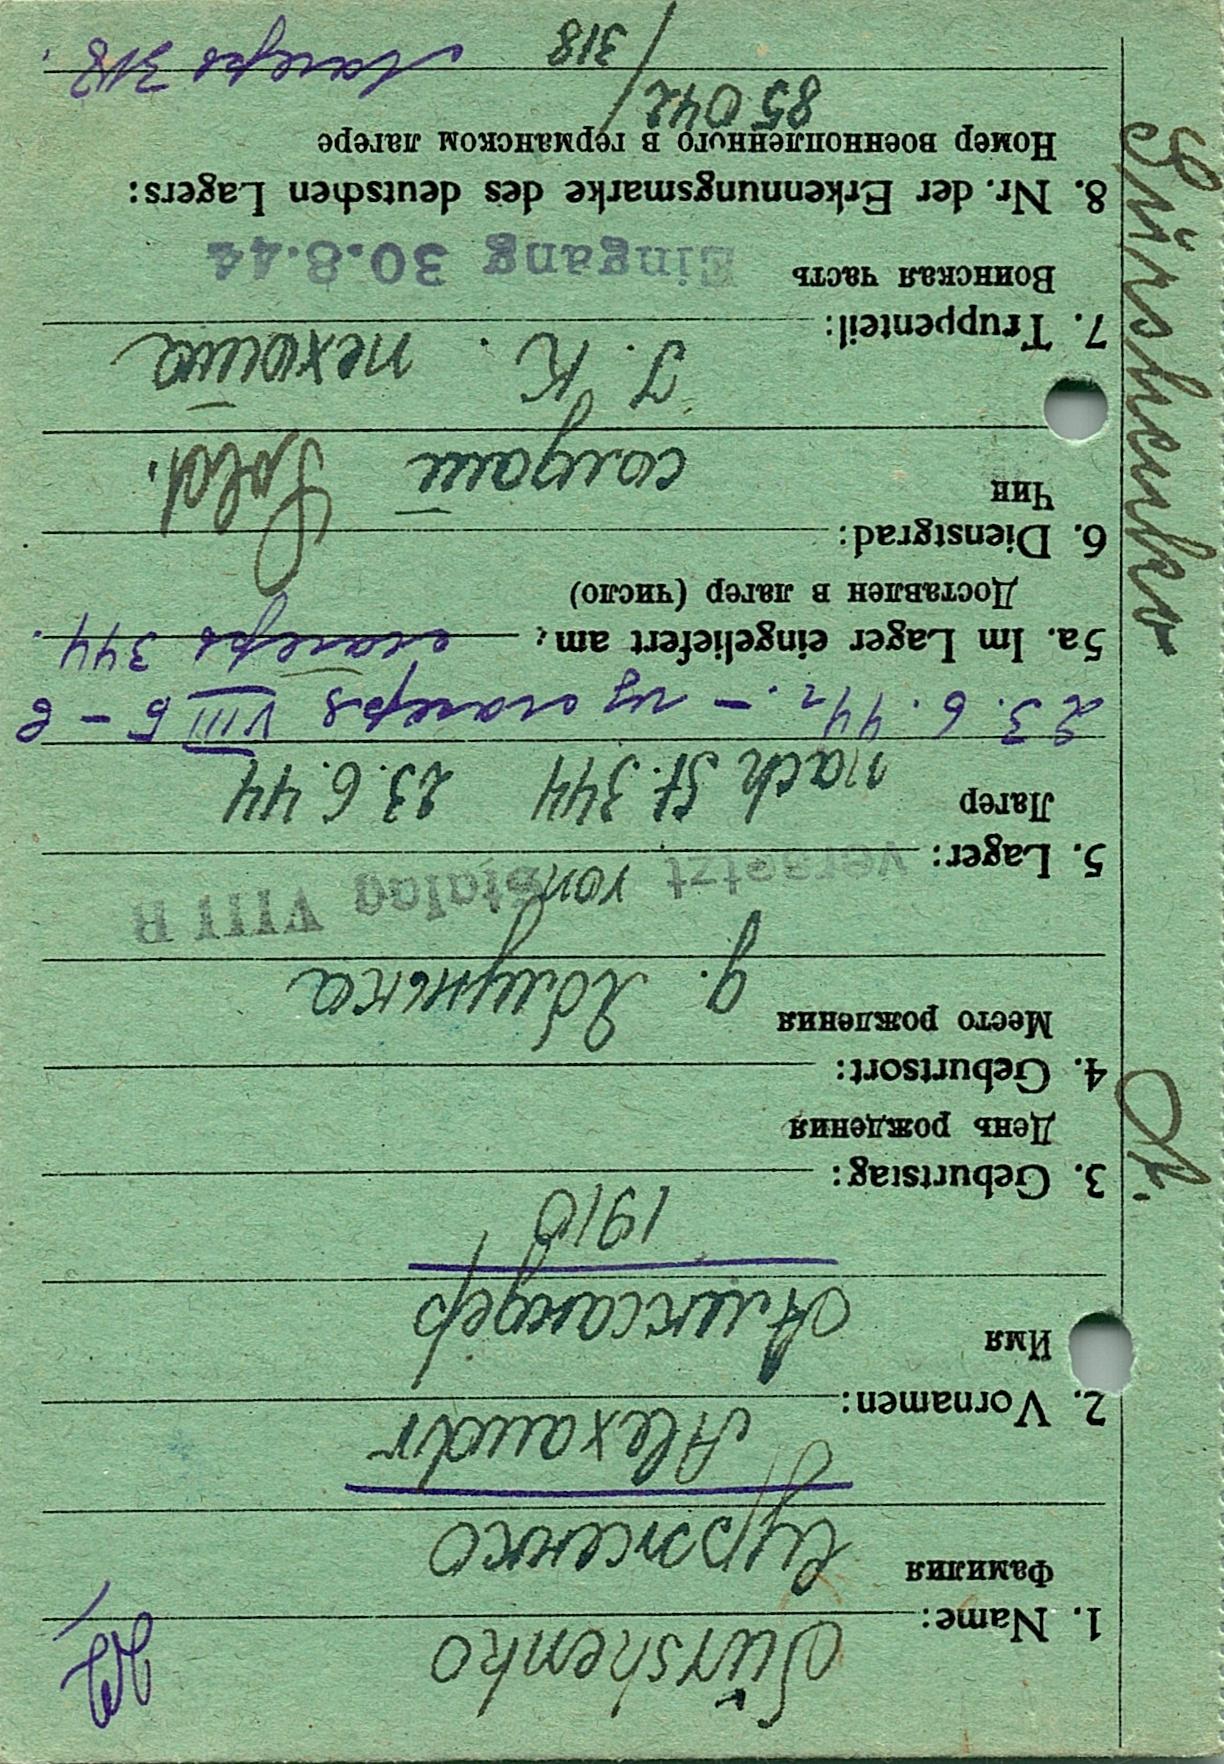 Sürshenko A.
1. Name: Sürshenko
Фамилия Сурженко
2. Vornamen: Alexandr
Имя Александер
3. Geburtstag: 1918
День рождения
4. Geburtsort:
Место рождения д. Яблунька
5. Lager: versetzt von Stalag VIII B
Лагер nach St. 344 23.6.44
23.6.44 г. – из лагеря VIII Б – в
5a. Im Lager eingeliefert am: лагерь 344.
Доставлен в лагер (число)
6. Dienstgrad: Sold.
Чин солдат
7. Truppenteil: J. R. пехота
Воинская часть Eingang 30.8.44
8. Nr. der Erkennungsmarke des deutschen Lagers:
Номер военнопленного в германском лагере
85042/318 Лагерь 318.